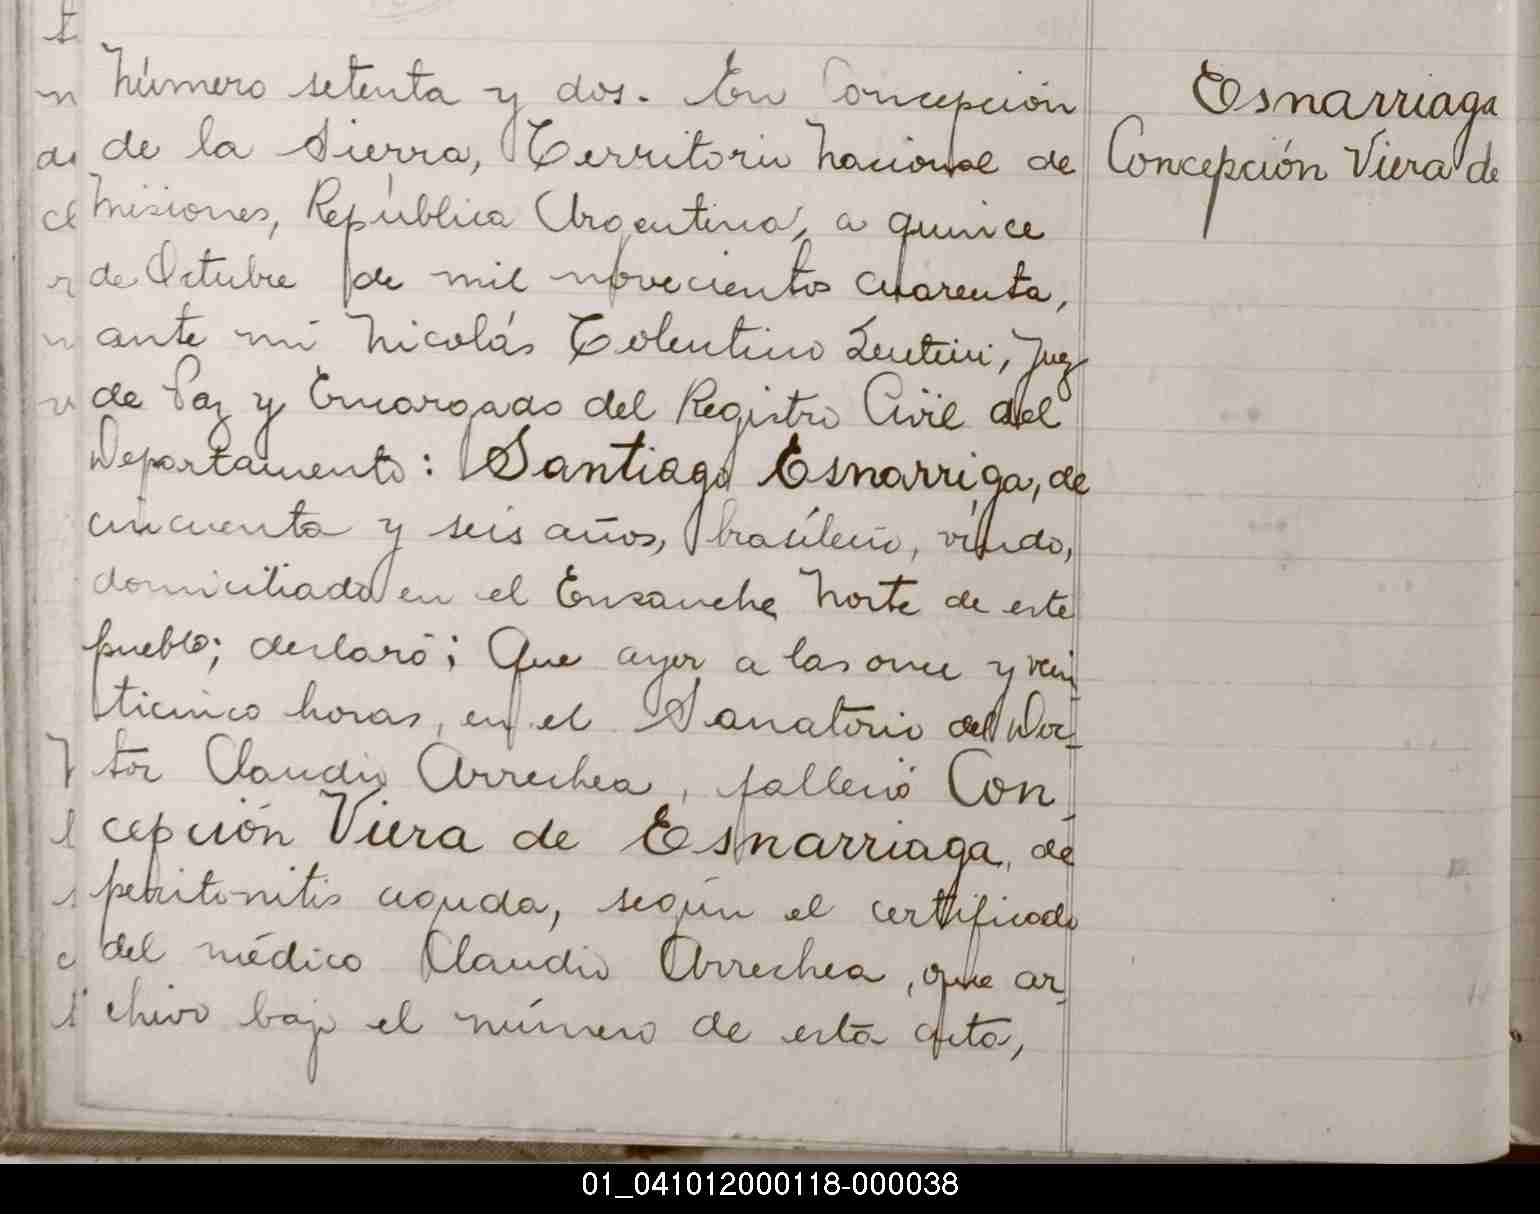 Número setenta y dos. En Concepción
de la Sierra, Territorio Nacional de
Misiones, República Argentina, a quince
de Octubre de mil novecientos cuarenta,
ante mí Nicolás Tolentino Lentini, Juez
de Paz y Encargado del Registro Civil del
Departamento: Santiago Esnarriga, de
cincuenta y seis años, brasileño, viudo,
domiciliado en el Ensanche Norte de este
pueblo; declaró: Que ayer a las once y vein
ticinco horas, en el Sanatorio del Doc-
tor Claudio Arrechea, falleció Con
cepción Viera de Esnarriaga, de
peritonitis aguda, según el certificado
del médico Claudio Arrechea, que ar-
chivo bajo el número de esta acta,
Esnarriaga
Concepción Viera de
01_041012000118-000038